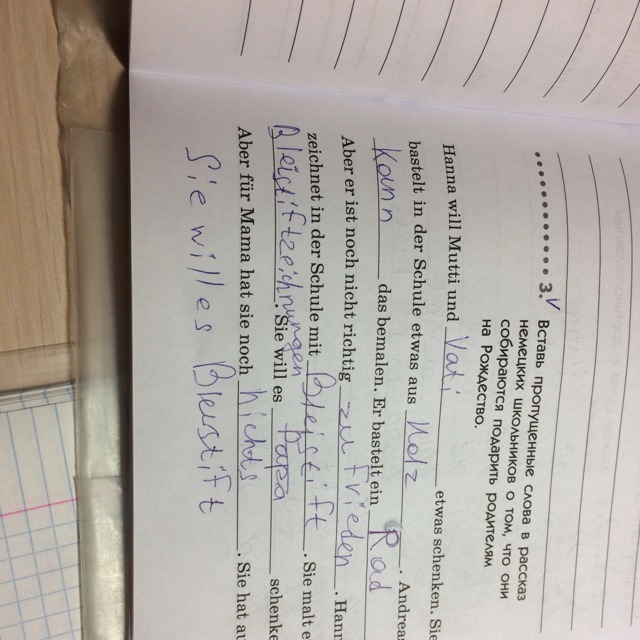 3. Вставь пропущенные слова в рассказ
немецких школьников о том, что они
собираются подарить родителям
на Рождество.
Hanna will Mutti und Vati etwas schenken. Sie
bastelt in der Schule etwas aus Holz. Andrea
kann das bemalen. Er bastelt ein Rad
Aber er ist noch nicht richtig zufrieden. Hann
zeichnet in der Schule mit Bleistift. Sie malt e
Bleistiftzeichnungen. Sie will es Papa schenke
Aber für Mama hat sie noch nichts. Sie hat au
Sie will es Bleistift